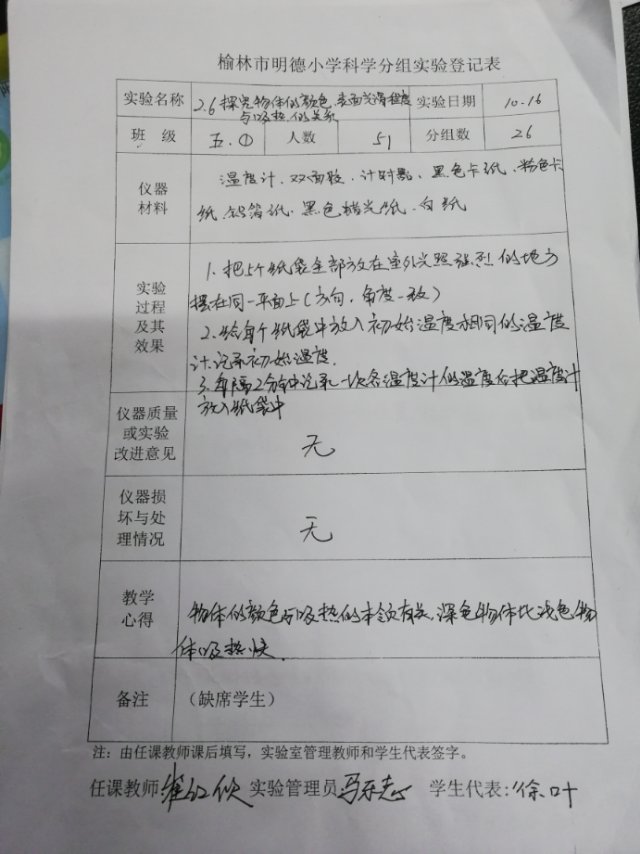 榆林市明德小学科学分组实验登记表
实验名称 2.6探究物体的颜色,表面光滑程度与吸热的关系 实验日期 10-16
班 级 五.① 人数 51 分组数 26
仪器材料
温度计、双面胶、计时器、黑色卡纸、粉色卡
纸、铝箔纸、黑色蜡光纸、白纸
实验过程及其效果
1、把5个纸袋全部放在室外光照强烈的地方
摆在同一平面上(方向,角度一致)
2、给每个纸袋中放入初始温度相同的温度
计.记录初始温度.
3、每隔2分钟记录一次各温度计的温度后把温度计
放入纸袋中
仪器质量或实验改进意见 无
仪器损坏与处理情况 无
教学心得
物体的颜色与吸热的本领有关,深色物体比浅色物
体吸热快.
备注 (缺席学生)
注:由任课教师课后填写,实验室管理教师和学生代表签字。
任课教师 实验管理员 学生代表:徐叶